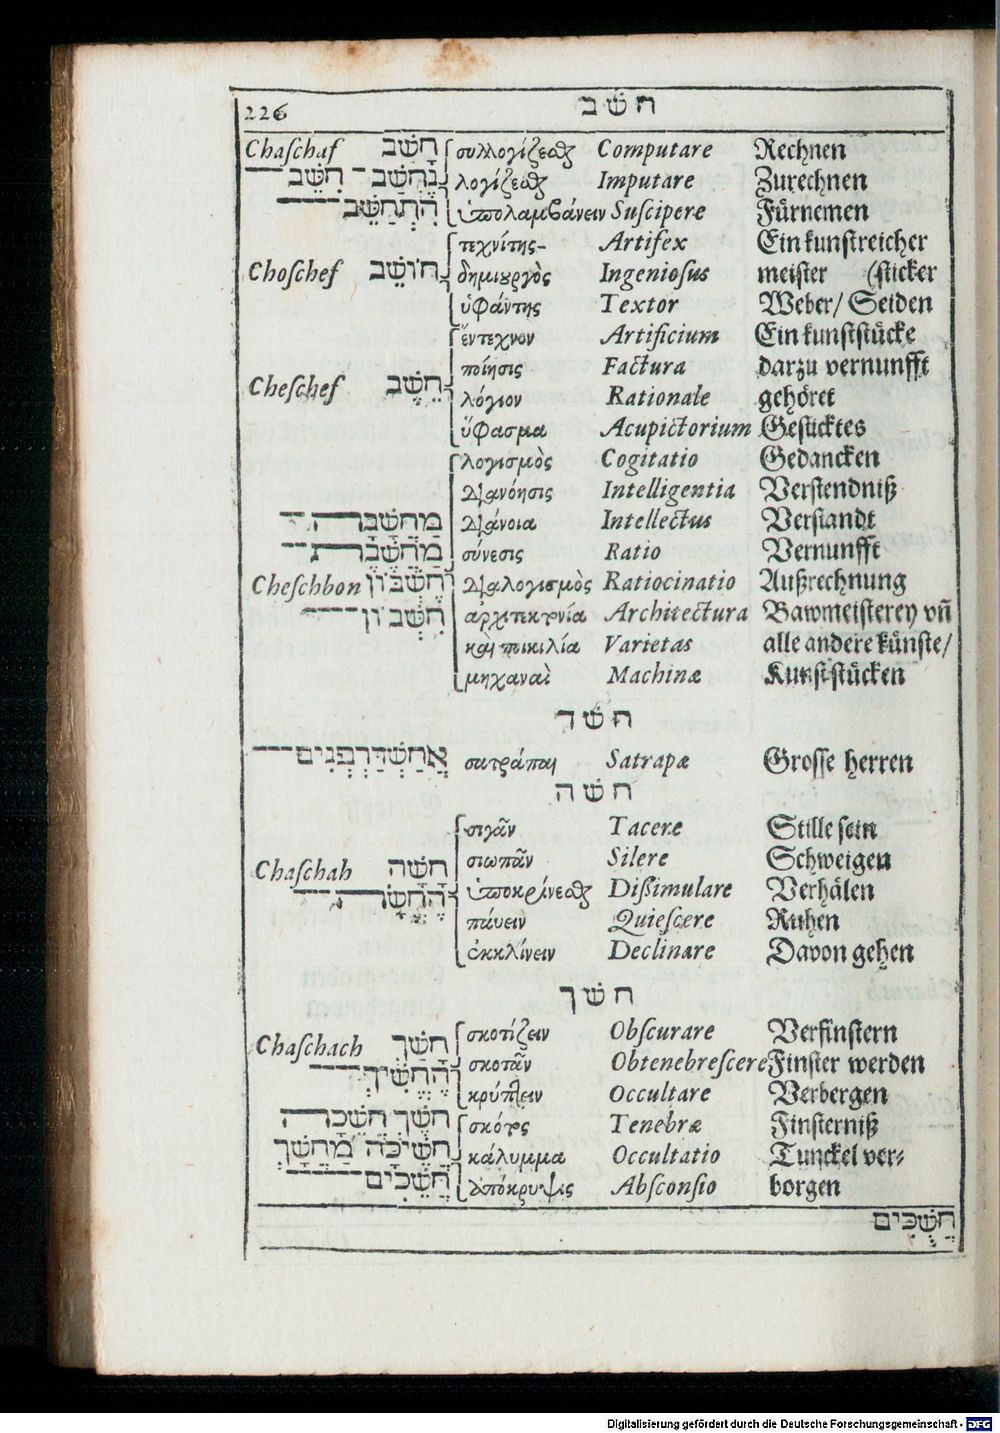 226 חשב
Chaſchaf חָשַׁב συλλογίζεσθαι Computare Rechnen
נֶחְשַׁב־ חִשֵּׁב λογίζεσθαι Imputare Zurechnen
הִתְחַשֵּׁב ὑπολαμβάνειν Suſcipere Fürnemen
τεχνίτης Artifex Ein kunſtreicher
Choſchef חוֹשֵׁב δημιουργὸς Ingenioſus meiſter (ſticker
ὑφάντης Textor Weber/ Seiden
ἔντεχνον Artificium Ein kunſtſtücke
ποίησις Factura darzu vernunfft
Cheſchef חֵשֶׁב λόγιον Rationale gehöret
ὕφασμα Acupictorium Geſticktes
λογισμὸς Cogitatio Gedancken
διανόησις Intelligentia Verſtendniß
מַחֲשָׁבָה διάνοια Intellectus Verſtandt
מַחֲשֶׁבֶת σύνεσις Ratio Vernunfft
Cheſchbon חֶשְׁבּוֹן διαλογισμὸς Ratiocinatio Außrechnung
חִשְּׁבוֹן ἀρχιτεκτονία Architectura Bawmeiſterey vñ
καὶ ποικιλία Varietas alle andere künſte/
μηχαναὶ Machinæ Kunſtſtücken
חשד
אֲחַשְׁדַּרְפְּנִים σατράπαι Satrapæ Groſſe herren
חשה
σιγᾶν Tacere Stille ſein
σιωπᾶν Silere Schweigen
Chaſchah חָשָׁה
הֶחֱשָׁה ὑποκρίνεσθαι Dißimulare Verhälen
παύειν Quieſcere Ruhen
ἐκκλίνειν Declinare Davon gehen
חשך
σκοτίζειν Obſcurare Verfinſtern
Chaſchach חָשַׁךְ σκοτᾶν Obtenebreſcere Finſter werden
הֶחֱשִׁיךְ κρύπτειν Occultare Verbergen
חֹשֶׁךְ חֲשֵׁכָה σκότος Tenebræ Finſterniß
חֲשֵׁיכָה מַחְשָׁךְ κάλυμμα Occultatio Tunckel ver-
חֲשֵׁכִים ἀπόκρυψις Abſconſio borgen
חֲשֻׁכִּים
Digitalisierung gefördert durch die Deutsche Forschungsgemeinschaft - DFG